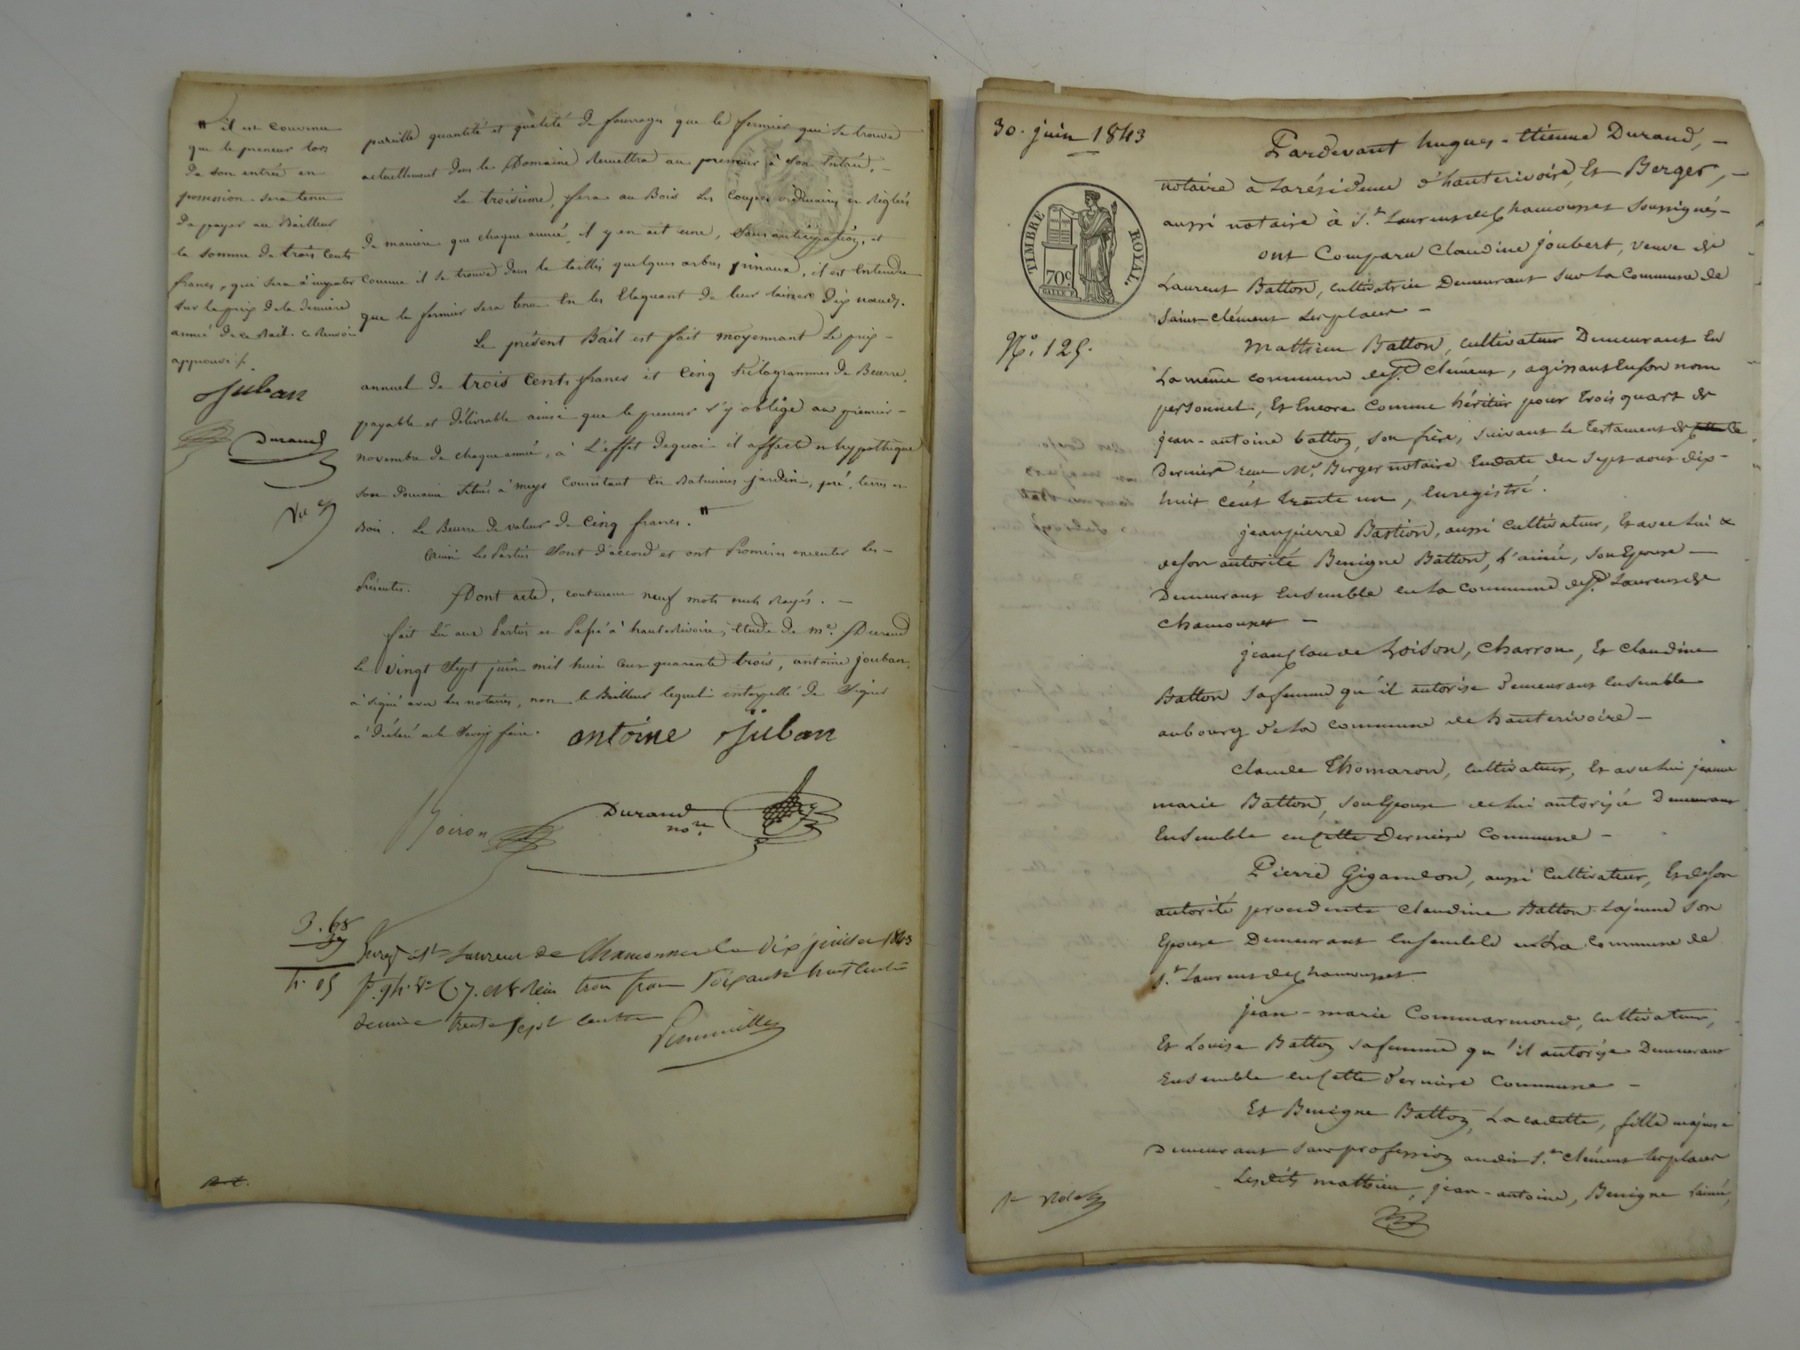 " il est convenu
que le preneur lors
de son entrée en
possession sera tenu
de payer au Bailleur
la somme de trois cents
francs, qui sera à imputer
sur le prix de la dernière
année de ce Bail. ce Renvoi
approuvé /.
Juban
Durand
pareille quantité et qualité de fourrages que le fermier qui se trouve
actuellement dans le Domaine remettra au preneur à son entrée. -
Le troisième, fera au Bois les Coupes ordinaires et Réglées
de manière que chaque année, il y en ait une, sans anticipation, et
comme il se trouve dans le taillis quelques arbres pinaux, il est entendu
que le fermier sera tenu en les Elaguant de leur laisser dix nœuds.
Le présent Bail est fait moyennant le prix -
annuel de trois cents francs et Cinq Kilogrammes de Beurre,
payable et délivrable ainsi que le preneur s'y oblige au premier -
novembre de chaque année, à L'effet de quoi il affecte et hypothèque
son Domaine situé à meys Consistant en Batiments, jardin, pré, terres et
Bois. Le Beurre de valeur de Cinq francs. "
Ainsi les Parties sont d'accord et ont Promis exécuter les -
Présentes. Dont acte, contenant neuf mots nuls Rayés. -
fait Lû aux Parties et Passé à hauterivoire, étude de me. Durand
Le vingt Sept juin mil huit cent quarante trois, antoine jouban,
à signé avec les notaires, non le Bailleur lequel interpellé de Signer
a déclaré ne le Savoir faire.
antoine Juban
Durand
nore.
Boiron
3. 68
37
4. 05
Enregt. à St Laurent de Chamousset le dix juillet 1843
fo. 94. vo. C 7. et 8 Reçu trois francs soixante huit centes
décime trente sept centimes
30. juin 1843
TIMBRE ROYAL.
70c
No. 125.
Pardevant hugues-Etienne Durand, -
notaire à La résidence d'hauterivoire, Et Berger, -
aussi notaire à St. Laurent de Chamousset Soussignés -
ont Comparu Claudine joubert, veuve de
Laurent Batton, cultivatrice Demeurant sur la Commune de
Saint-clément les places -
Mathieu Batton, cultivateur Demeurant En
La même commune de St. clément, agissant En son nom
personnel, Et Encore Comme héritier pour trois quart de
jean-antoine batton, son frère, suivant le testament de ce
Dernier reçu Me. Berger notaire En date du sept aout dix-
huit cent trente un, Enregistré.
jean pierre Bastion, aussi cultivateur, Et avec lui &
de son autorité Benigne Batton, L'ainée, son Epouse -
Demeurant Ensemble en la Commune de St. Laurent de
Chamousset -
jean Claude Loison, Charron, Et Claudine
Batton Sa femme qu'il autorise Demeurant Ensemble
au bourg de La Commune de hauterivoire -
Claude Thomaron, cultivateur, Et avec lui jeanne
marie Batton, son Epouse de lui autorisée Demeurant
Ensemble en Cette Dernière Commune -
Pierre Gigandon, aussi Cultivateur, Et de son
autorité procedente Claudine Batton La jeune son
Epouse Demeurant Ensemble en La Commune de
St. Laurent de Chamousset
jean-marie Commarmond, cultivateur,
Et Louise Batton sa femme qu'il autorise Demeurant
Ensemble en Cette Dernière Commune -
Et Benigne Batton, La cadette, fille majeure
Demeurant Sans profession audit St. clément les places
Lesdits mathieu, jean-antoine, Benigne L'ainée,